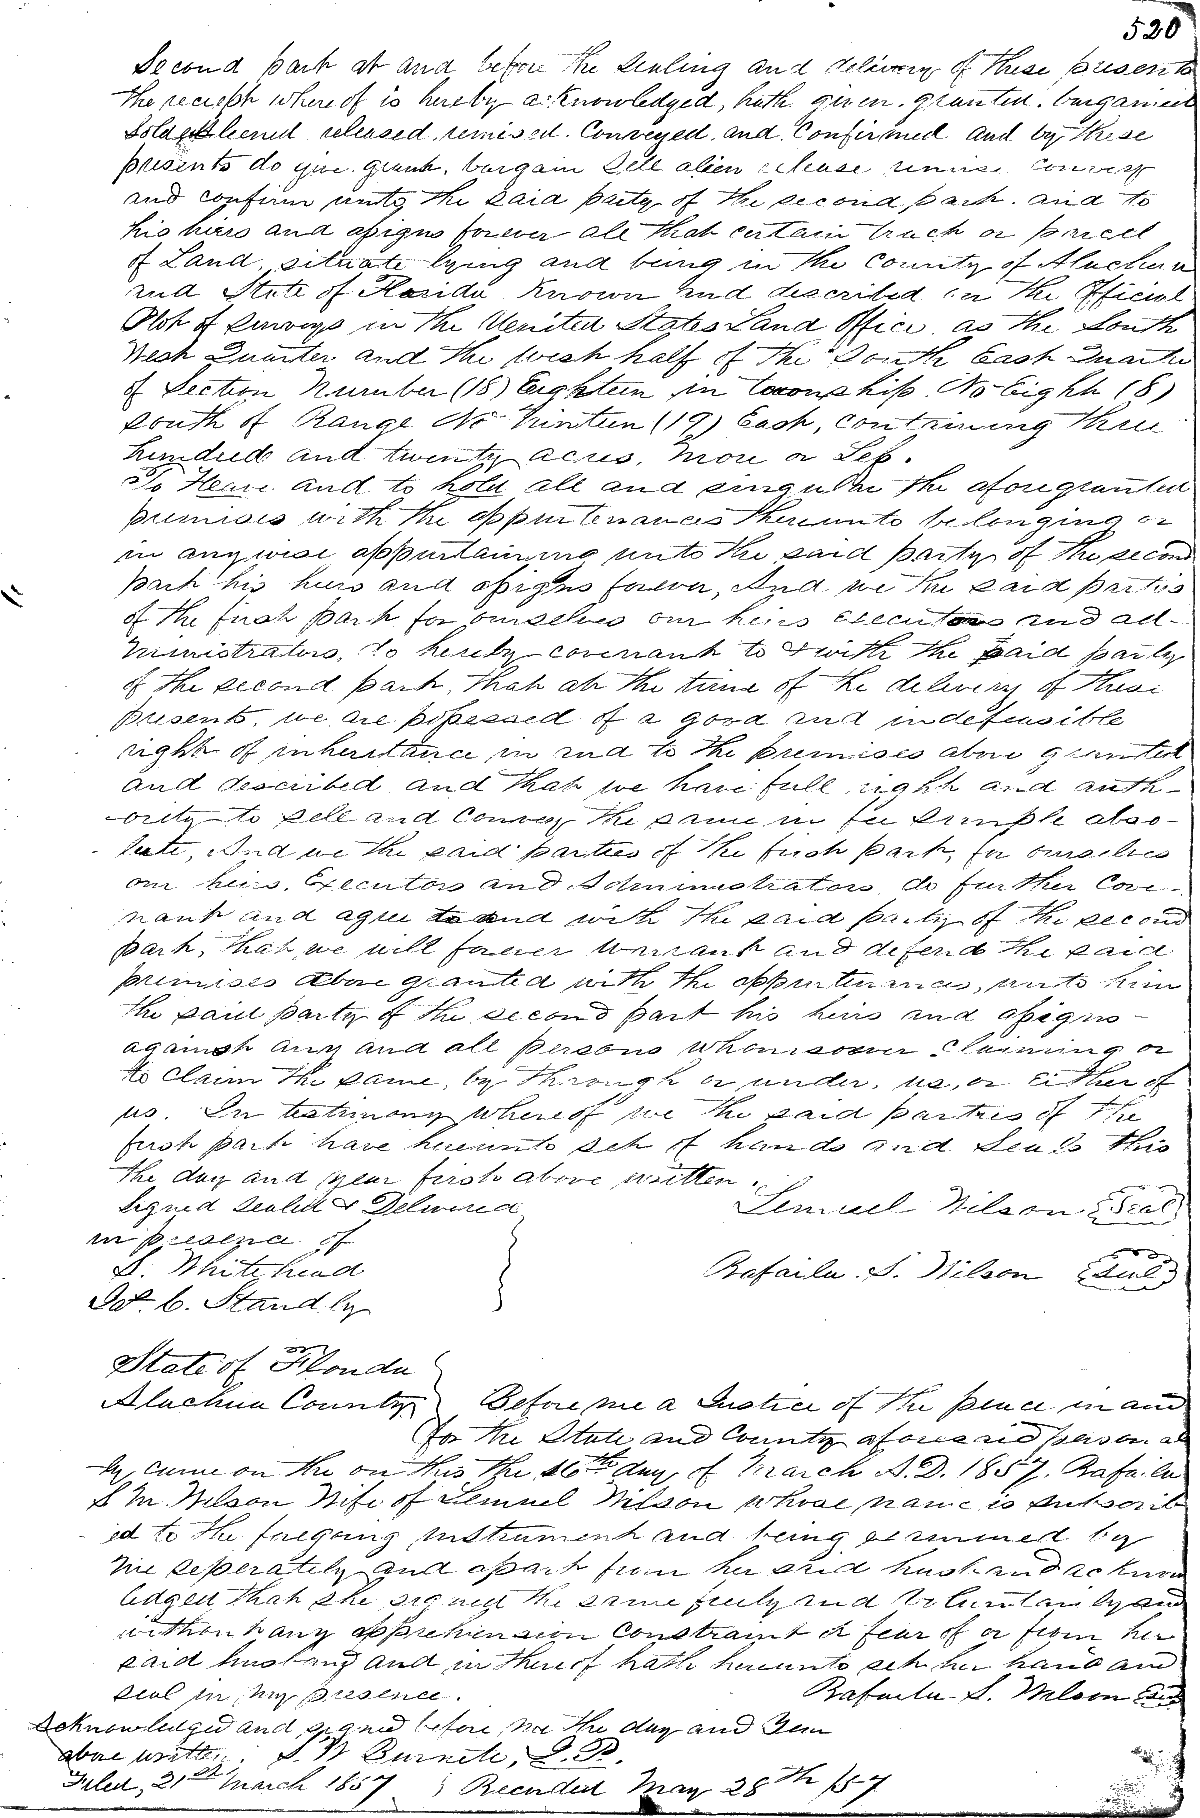 520
Second part at and before the sealing and delivery of these presents
the reciept whereof is hereby acknowledged, hath given. granted. bargained
Sold aliened released, remised. Conveyed and Confirmed and by these
presents do give grant, bargain Sell alien release remise convey
and confirm unto the said party of the second part. and to
his heirs and assigns forever all that certain track or parcel
of Land, situate lying and being in the county of Alachua
and State of Florida Known and described in the Official
Plot of surveys in the United States Land Office as the South
West Quarter and the west half of the South East Quarter
of Section Number (18) Eighteen in township No Eight (8)
south of Range No Ninteen (19) East, containing three
hundred and twenty acres. More or Less.
To Have and to hold all and singular the aforegranted
premises with the appurtenances thereunto belonging or
in any wise appurtaining unto the said party of the second
part his heirs and assigns forever, And we the said parties
of the first part for ourselves our heirs Executors and ad-
ministrators, do hereby covenant to & with the said party
of the second part, that at the time of the delivery of these
presents, we are possessed of a good and indefeasible
right of inheritance in and to the premises above granted
and described and that we have full right and auth-
-ority to sell and Convey the same in fee simple abso-
lute, And we the said parties of the first part, for ourselves
our heirs, Executors and Administrators do further Cove-
nant and agree to and with the said party of the second
part, that we will forever warrant and defend the said
premises above granted with the appurtenances, unto him
the said party of the second part his heirs and assigns -
against any and all persons whomsoever claiming or
to claim the same, by through or under, us, or Either of
us. In testimony whereof we the said parties of the
first part have hereunto set of hands and Seals this
the day and year first above written.
Signed sealed & Delivered
Lemuel Wilson Seal
in presence of
S. Whitehead
Rafaila. S. Wilson Seal
C. Standly
State of Florida
Alachua County Before me a Justice of the peace in and
for the State and County aforesaid personal
ly came on the on this the 16th day of March A.D. 1857. Rafaila
S M Wilson Wife of Lemuel Wilson whose name is subscrib
ed to the foregoing instrument and being examined by
me seperately and apart from her said husband acknow
ledged that she signed the same freely and Voluntarily and
without any apprehension constraint or fear of or from her
said husband and in thereof hath hereunto set her hand and
seal in my presence. Rafaila S. Wilson Seal
Acknowledged and signed before me the day and Year
above written. S. W Burnett, J. P.
Filed, 21st March 1857 Recorded May 28th 1857